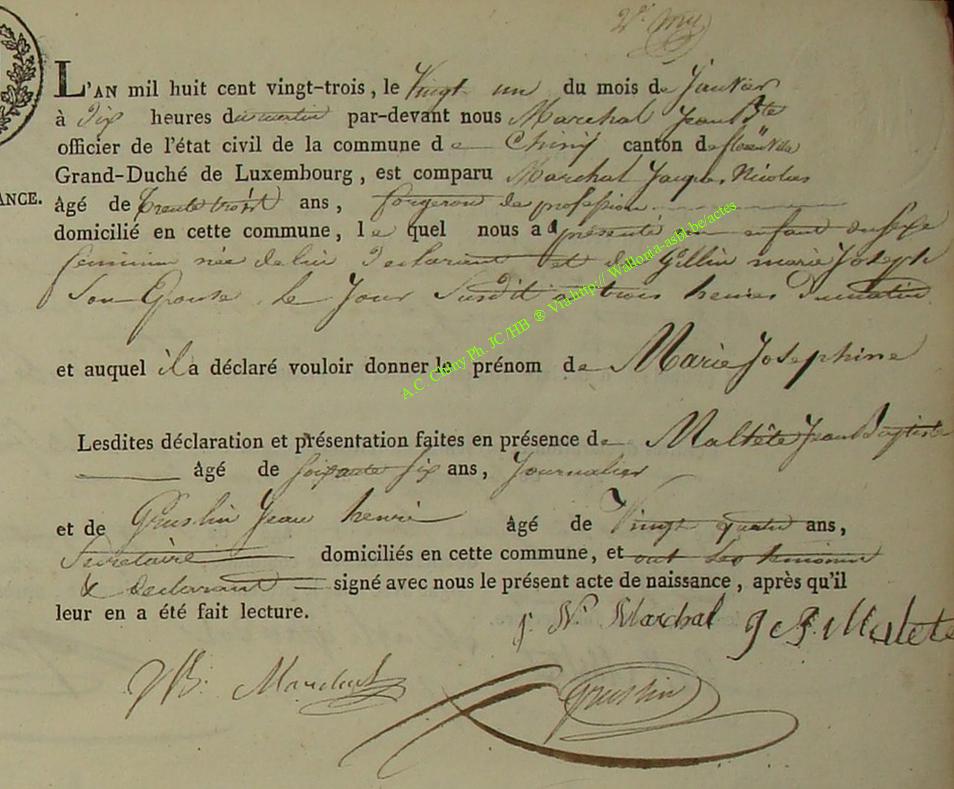 L'AN mil huit cent vingt-trois, le Vingt un du mois de Janvier
à Dix heures du matin par-devant nous Marechal Jean Bte
officier de l'état civil de la commune de Chiny canton de florenville
Grand-Duché de Luxembourg, est comparu Marchal Jacques Nicolas
ANCE. âgé de trente trois ans, forgeron de profession
domicilié en cette commune, le quel nous a présenté un enfant du sexe
feminin née de lui Declarant et de Gillin marie Joseph
Son Epouse, le Jour Susdit a trois heures du matin
et auquel il a déclaré vouloir donner le prénom de Marie Josephine
Lesdites déclaration et présentation faites en présence de Maltête Jean Baptiste
âgé de soixante six ans, Journalier
et de Gruslin Jean henri âgé de Vingt quatre ans,
Secretaire domiciliés en cette commune, et ont les temoins
& declarant signé avec nous le présent acte de naissance, après qu'il
leur en a été fait lecture.
J. Ns. Marchal J. B. Maltete
JB. Marechal Gruslin
A.C. Chiny Ph. JC /HB ® Via:http:// Wallonia-asbl.be/actes